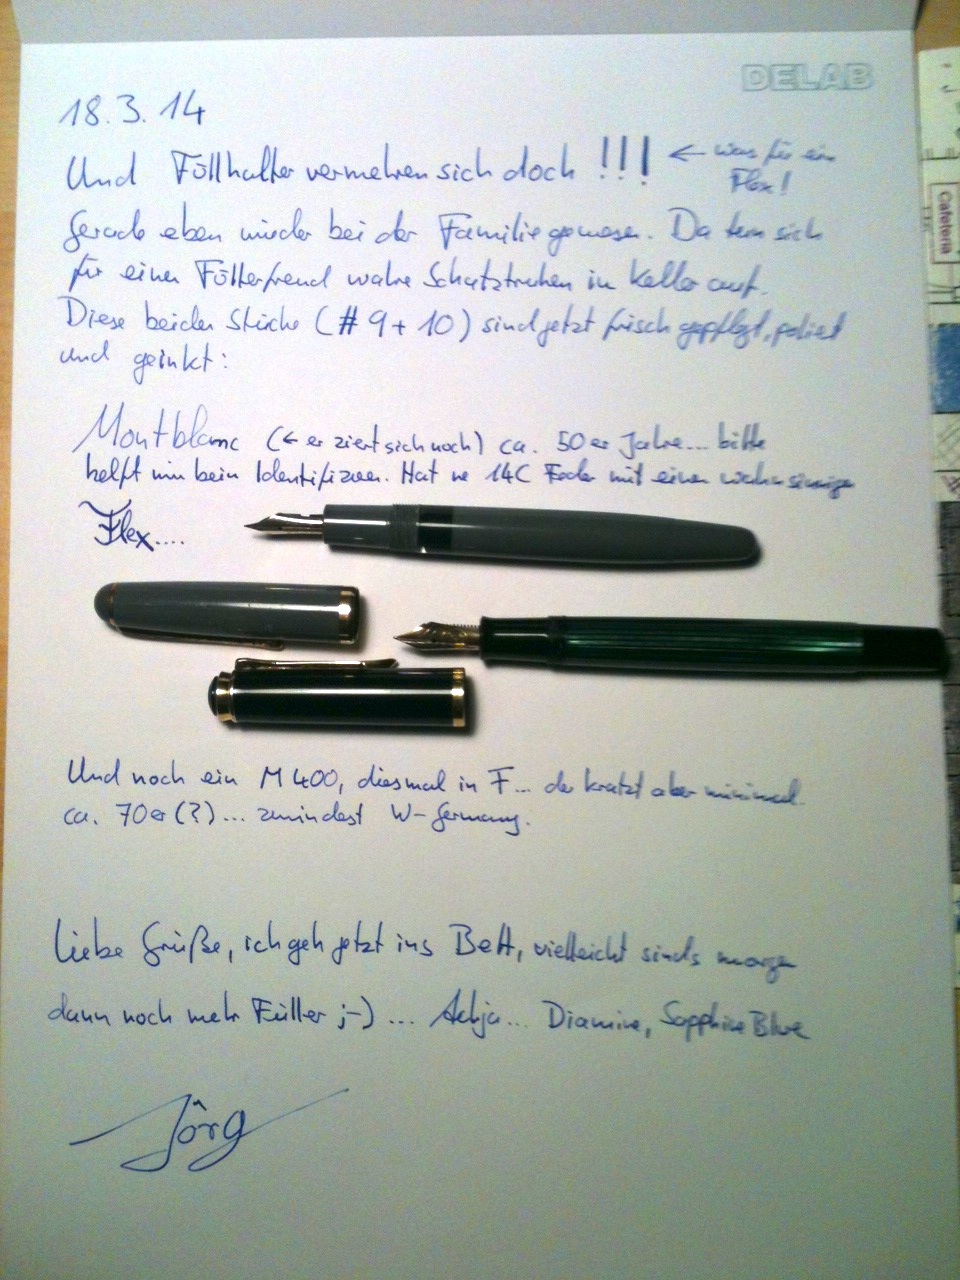 DELAB
18.3.14
Und Füllhalter vermehren sich doch !!! ← was für ein
Flex!
Gerade eben wieder bei der Familie gewesen. Da tun sich
für einen Füllerfreund wahre Schatztruhen im Keller auf.
Diese beiden Stücke (#9+10) sind jetzt frisch gepflegt, poliert
und geinkt:
Cafeteria
Montblanc (← er ziert sich noch) ca. 50er Jahre... bitte
helft mir beim Identifizieren. Hat ne 14C Feder mit einem wahnsinnigen
Flex....
Und noch ein M400, diesmal in F... der kratzt aber minimal.
ca. 70er (?)... zumindest W-Germany.
Liebe Grüße, ich geh jetzt ins Bett, vielleicht sinds morgen
dann noch mehr Füller ;-) ... Achja... Diamine, Sapphire Blue
Jörg